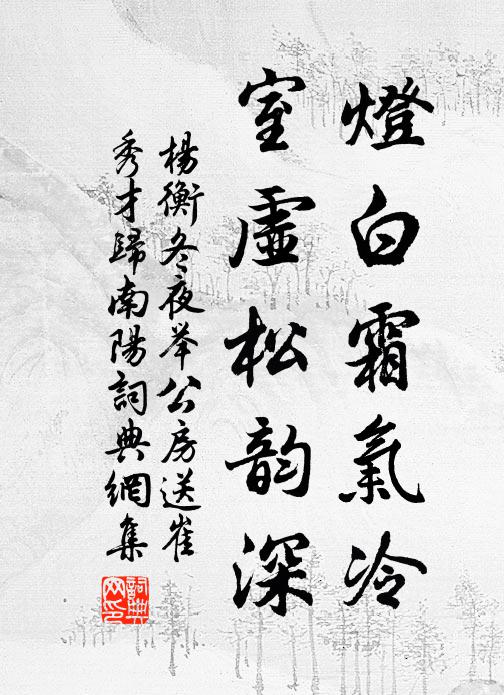 燈白霜氣冷
室虛松韵深
楊衡冬夜举公房送崔
秀才歸南陽詞典網集